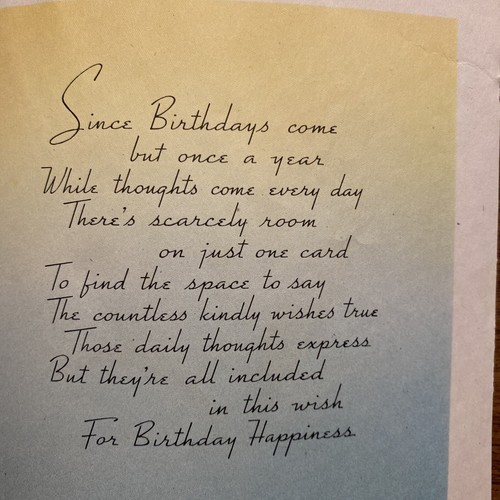 Since Birthdays come
but once a year
While thoughts come every day
There's scarcely room
on just one card
To find the space to say
The countless kindly wishes true
Those daily thoughts express
But they're all included
in this wish
For Birthday Happiness